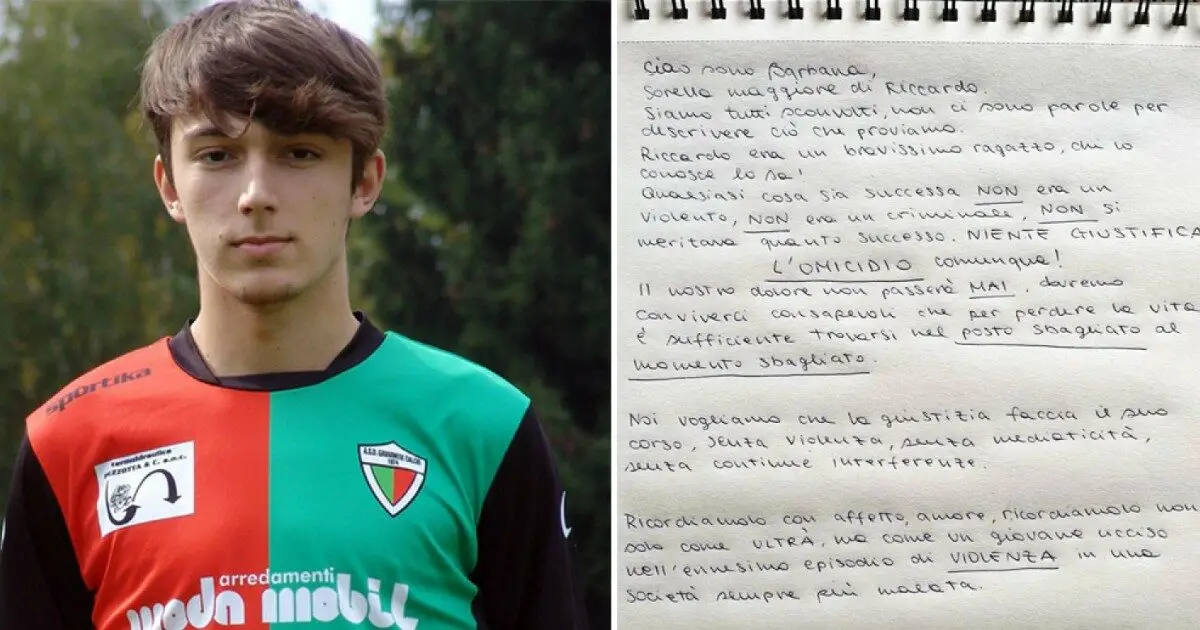 sportika
termoidraulica
PEZZOTTA & C. s.n.c.
A.S.D. CALCIO
1974
arredamenti
moda mobil
Ciao sono Barbara,
Sorella maggiore di Riccardo.
Siamo tutti sconvolti, non ci sono parole per
descrivere ciò che proviamo.
Riccardo era un bravissimo ragazzo, chi lo
conosce lo sa!
Qualsiasi cosa sia successa NON era un
violento, NON era un criminale, NON si
meritava quanto successo. NIENTE GIUSTIFICA
L'OMICIDIO comunque!
Il nostro dolore non passerà MAI, dovremo
conviverci consapevoli che per perdere la vita
è sufficiente trovarsi nel posto sbagliato al
momento sbagliato.
Noi vogliamo che la giustizia faccia il suo
corso, senza violenza, senza mediaticità,
senza continue interferenze.
Ricordiamolo con affetto, amore, ricordiamolo non
solo come ULTRÀ, ma come un giovane ucciso
nell'ennesimo episodio di VIOLENZA in una
società sempre più malata.